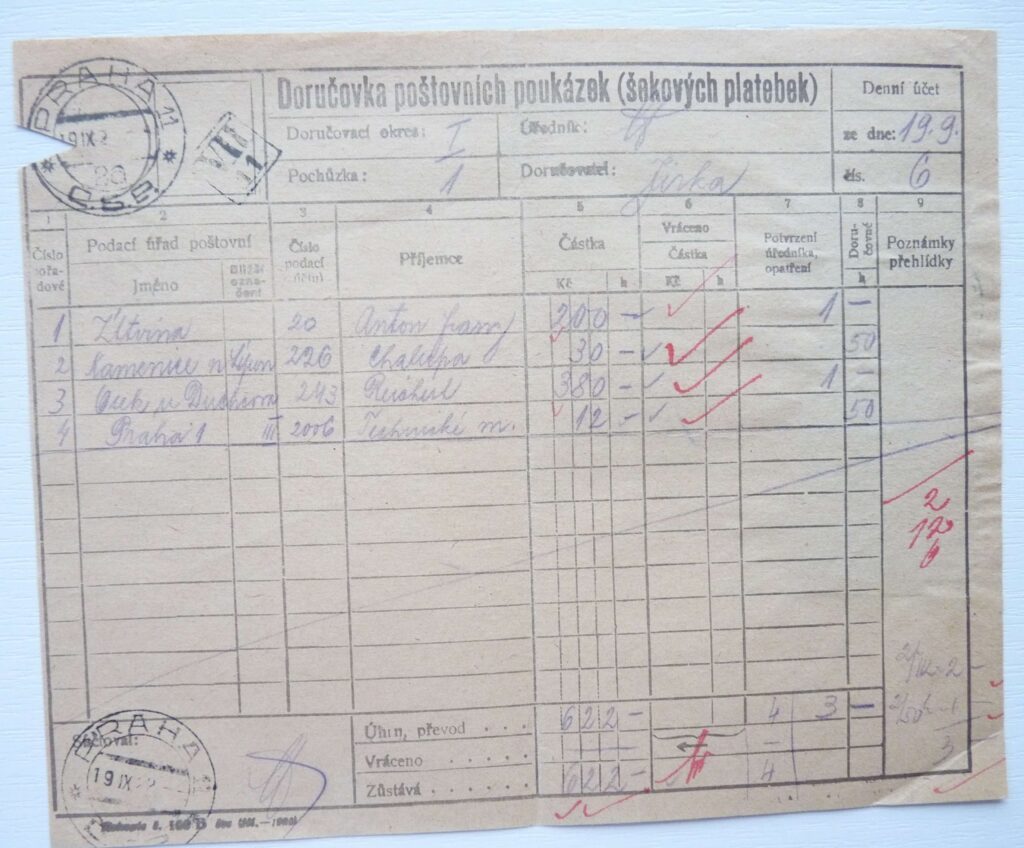 PRAHA 11
19 IX
ČSP.
Doručovka poštovních poukázek (šekových platebek)
Denní účet
Doručovací okres: I
Úředník:
ze dne: 19.9.
Pochůzka: 1
Doručovatel: Jirka
čís. 6
1 2 3 4 5 6 7 8 9
Číslo pořadové
Podací úřad poštovní
Jméno
Číslo podací
Příjemce
Částka
Kč h
Vráceno
Částka
Kč h
Potvrzení úředníka, opatření
Doručovné
h
Poznámky přehlídky
1 20 Anton 200 - 1 -
2 Kamenice n 226 Chalupa 30 - 50
3 Osek u Duchcova 243 380 - 1 -
4 Praha 1 III 2006 Technické m. 12 - 50
2
12
6
Úhrn, převod . . . . 622 - 4 3 -
Vráceno . . . . . . - -
Zůstává . . . . . . 622 - 4
3
Sečtoval:
PRAHA 11
19 IX